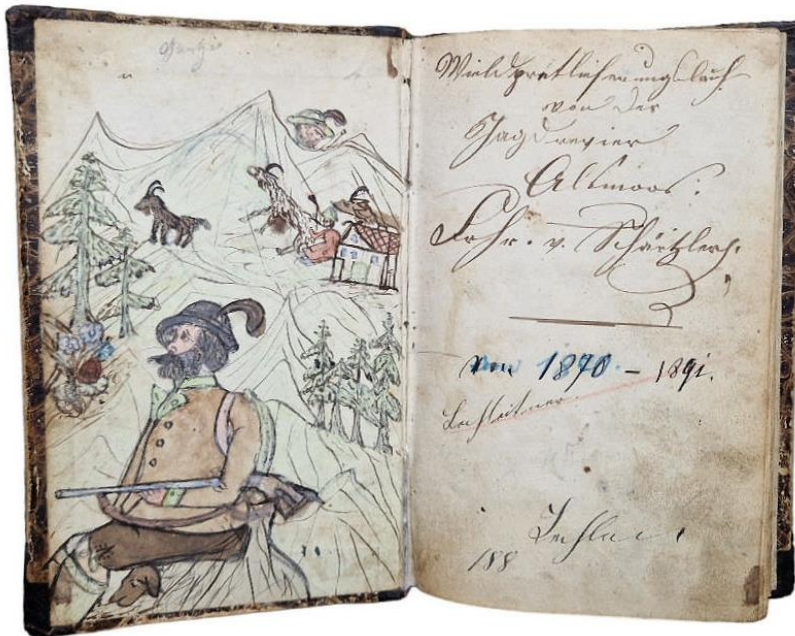 Wildpretlieferungsbuch
von der
Jagdrevier
Altmoos.
Frhr. v. Schäetzler.
von 1870. – 1891.
Lechleitner.
188